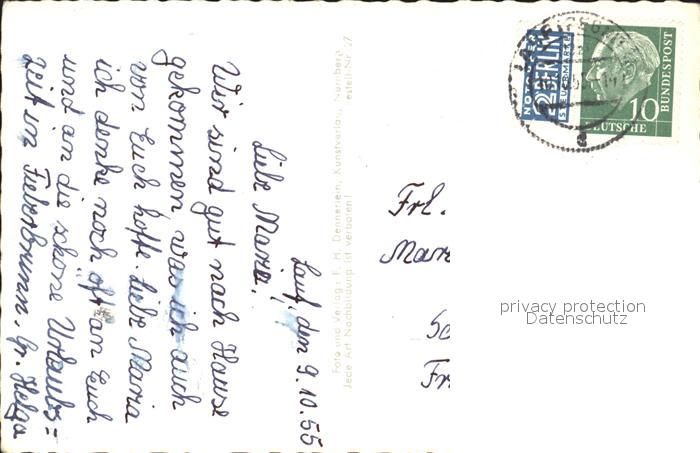 Lauf, den 9.10.55
Liebe Maria!
Wir sind gut nach Hause
gekommen was ich auch
von Euch hoffe. Liebe Maria
ich denke noch oft an Euch
und an die schöne Urlaubs=
zeit in Fieberbrunn. Gr. Helga
Foto und Verlag: F. M. Dennerlein, Kunstverlag, Nürnberg
Jede Art Nachbildung ist verboten!
NOTOPFER
2 BERLIN
STEUERMARKE
10
DEUTSCHE
BUNDESPOST
a
Frl.
Mari
Sc
Fr
privacy protection
Datenschutz